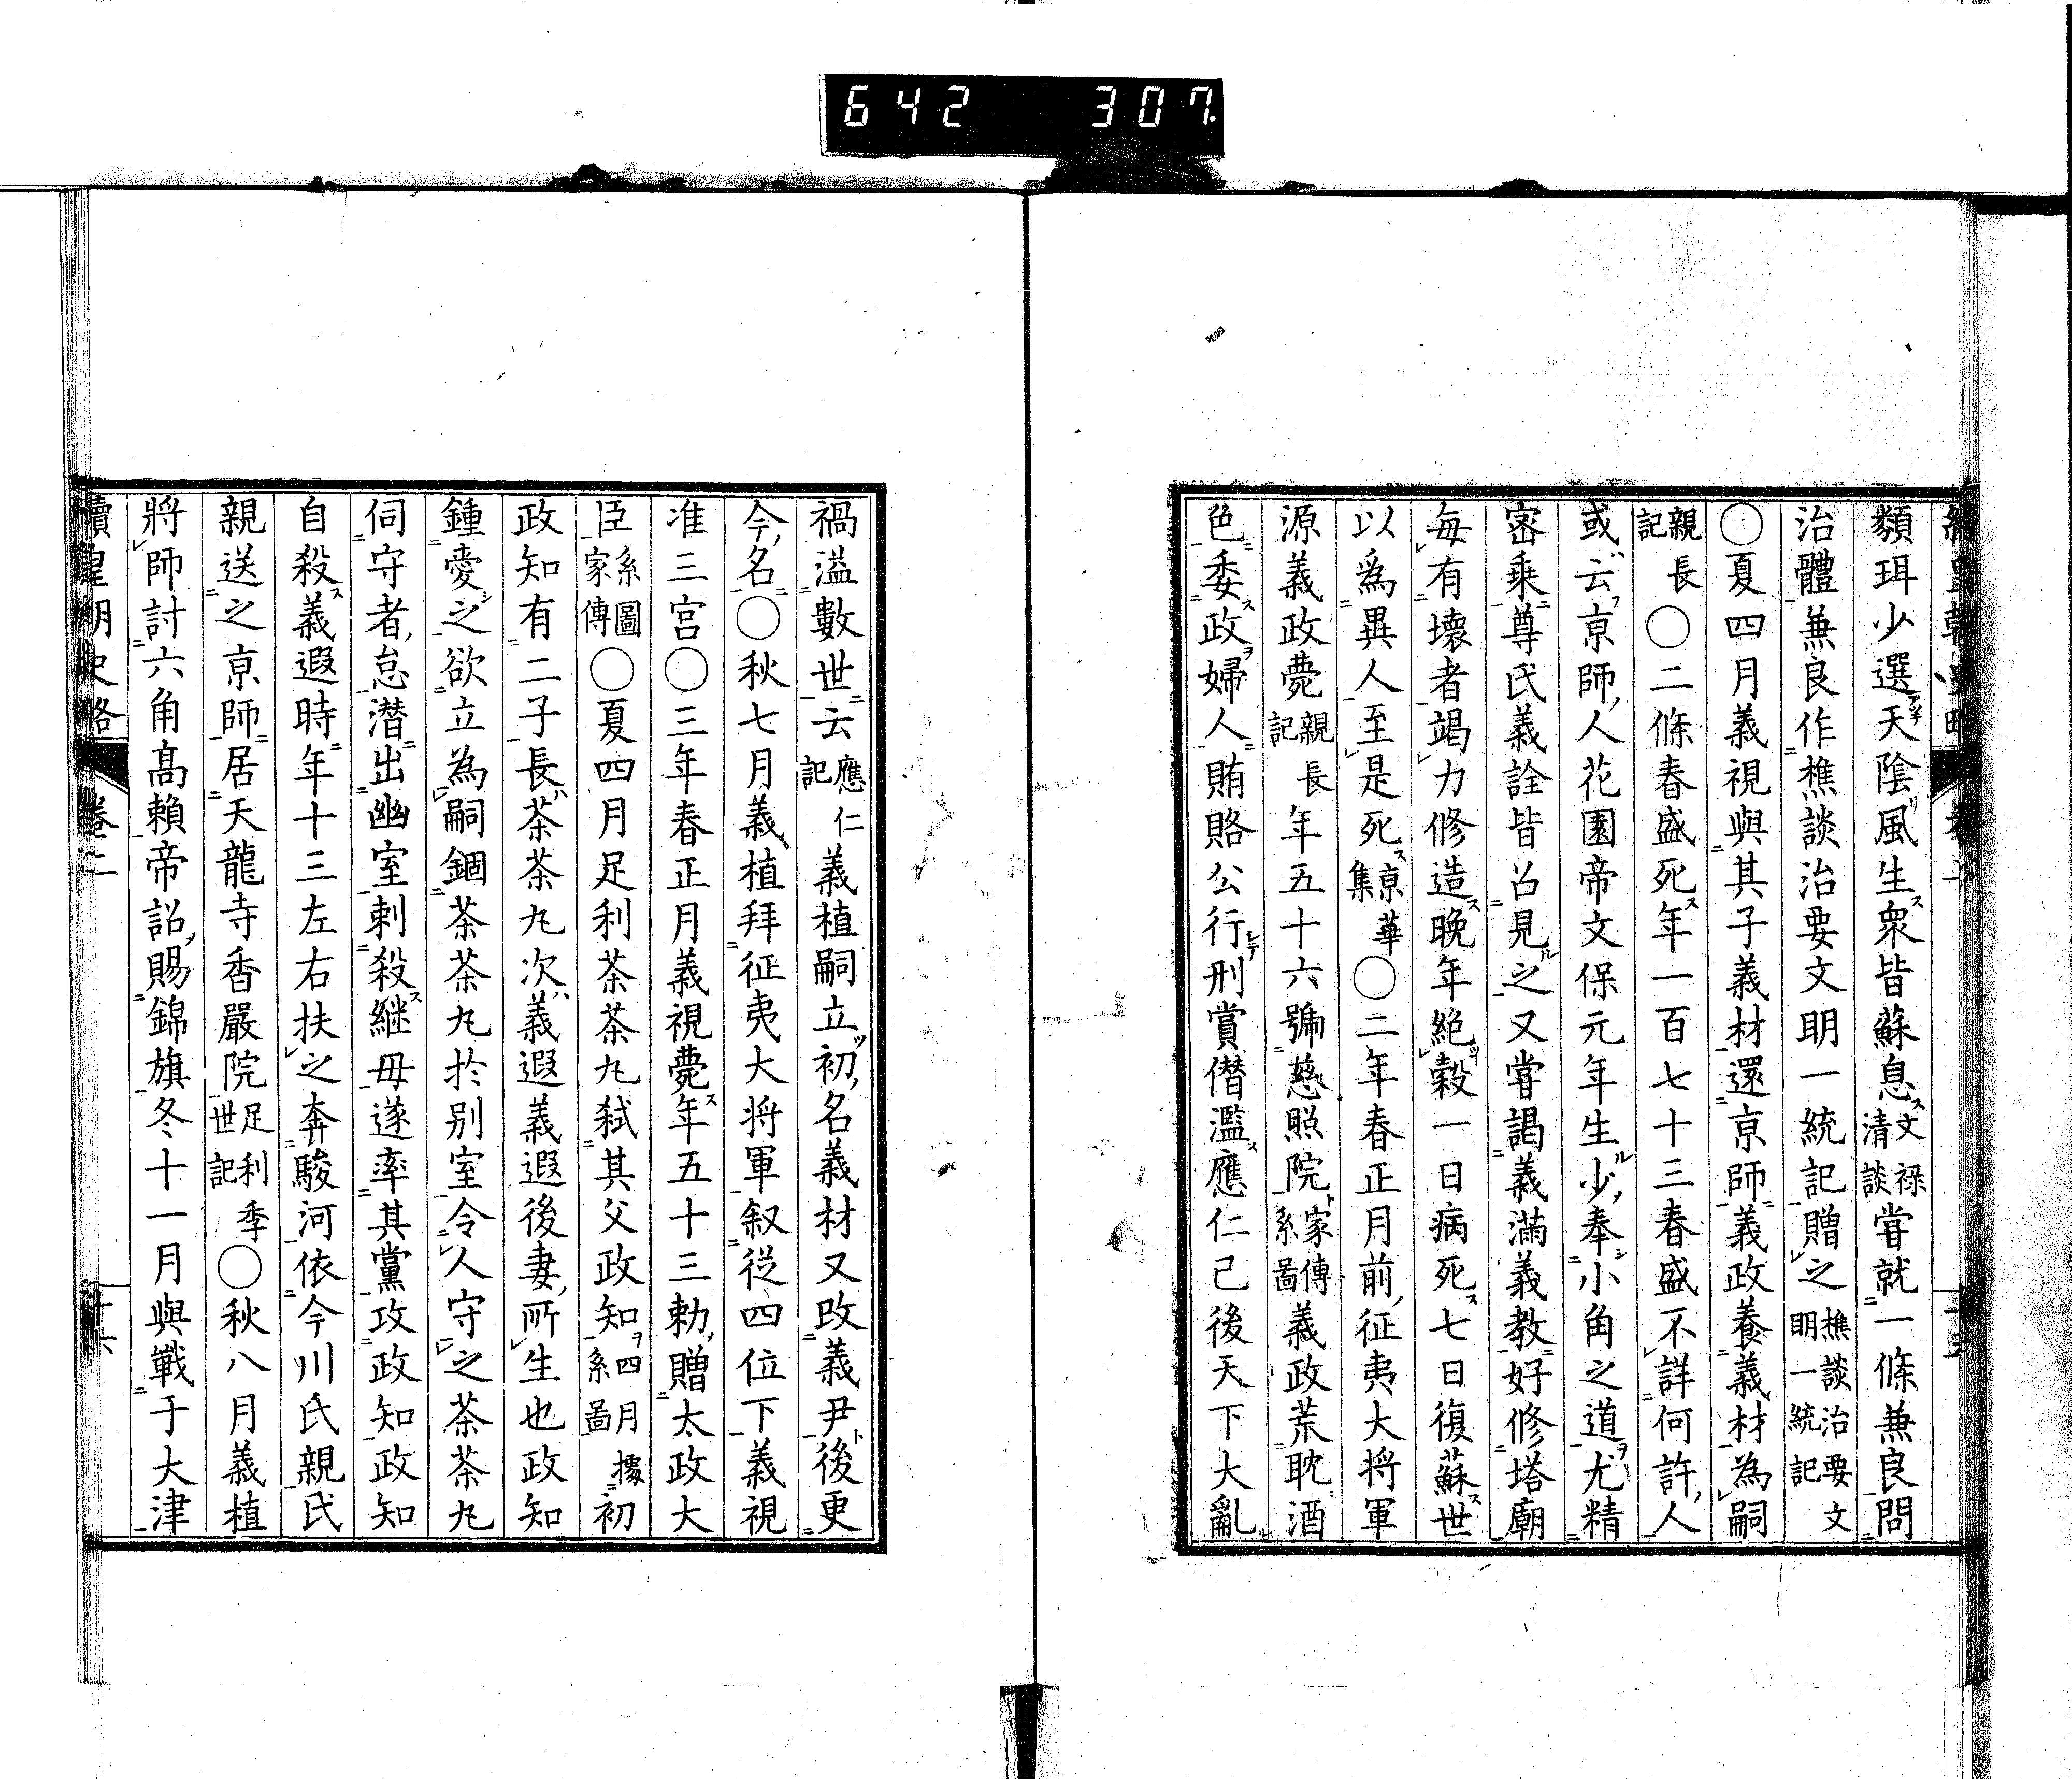 642 307
纇珥少選天陰風生衆皆蘇息文祿清談嘗就一條兼良問
治體兼良作樵談治要文明一統記贈之樵談治要文明一統記
○夏四月義視與其子義材還京師義政養義材為嗣
親長記○二條春盛死年一百七十三春盛不詳何許人
或云京師人花園帝文保元年生少奉小角之道尤精
密乗尊氏義詮皆召見之又嘗謁義滿義教好修塔廟
毎有壊者竭力修造晩年絶穀一日病死七日復蘇世
以為異人至是死京華集○二年春正月前征夷大将軍
源義政薨親長記年五十六號慈照院家傳系啚義政荒耽酒
色委政婦人賄賂公行刑賞僭濫應仁已後天下大亂
禍溢數世云應仁記義植嗣立初名義材又改義尹後更
今名○秋七月義植拜征夷大将軍叙従四位下義視
准三宮○三年春正月義視薨年五十三勅贈太政大
臣系圖家傳○夏四月足利茶茶丸弑其父政知四月據系啚初
政知有二子長茶茶丸次義遐義遐後妻所生也政知
鍾愛之欲立為嗣錮茶茶丸於別室令人守之茶茶丸
伺守者怠潜出幽室刺殺継母遂率其黨攻政知政知
自殺義遐時年十三左右扶之奔駿河依今川氏親氏
親送之京師居天龍寺香嚴院足利季世記○秋八月義植
將師討六角高頼帝詔賜錦旗冬十一月與戰于大津
續皇朝史略 卷二